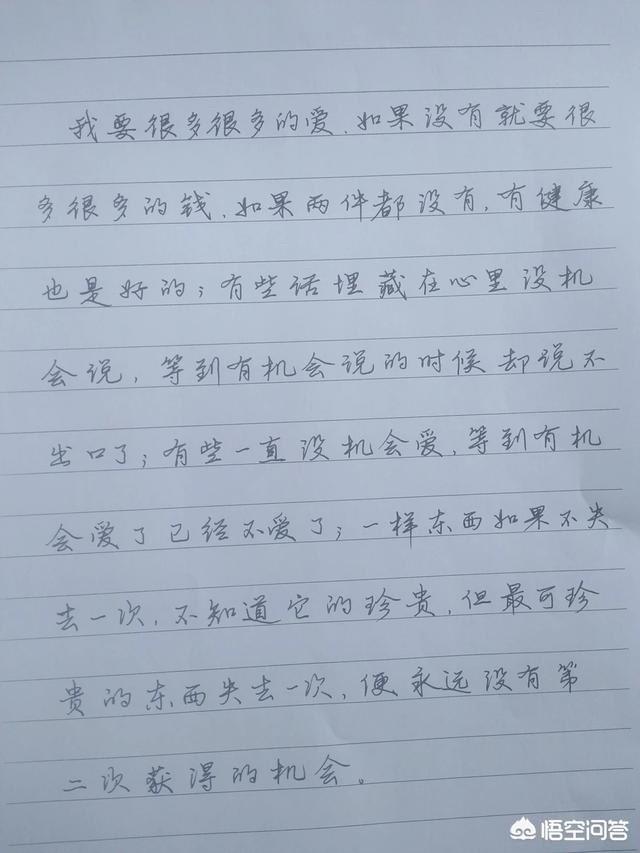 我要很多很多的爱，如果没有就要很
多很多的钱，如果两件都没有，有健康
也是好的；有些话埋藏在心里没机
会说，等到有机会说的时候却说不
出口了；有些一直没机会爱，等到有机
会爱了已经不爱了；一样东西如果不失
去一次，不知道它的珍贵，但最可珍
贵的东西失去一次，便永远没有第
二次获得的机会。
悟空问答